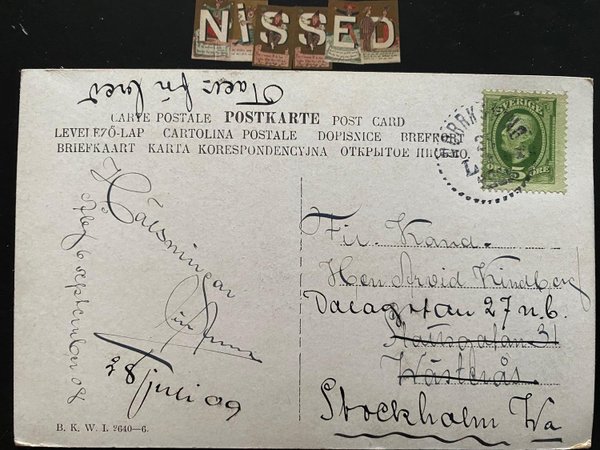 NiSSED
Tack för kortet
CARTE POSTALE POSTKARTE POST CARD
LEVELEZŐ-LAP CARTOLINA POSTALE DOPISNICE BREFKORT
BRIEFKAART KARTA KORESPONDENCYJNA ОТКРЫТОЕ ПИСЬМО.
SVERIGE
5 ÖRE
Hälsningar
28 juli 09
september 08
Fil. Kand.
Herr Arvid Kindberg
Dalagatan 27 n.b.
Västerås.
Stockholm Va
B. K. W. I. 2640—6.